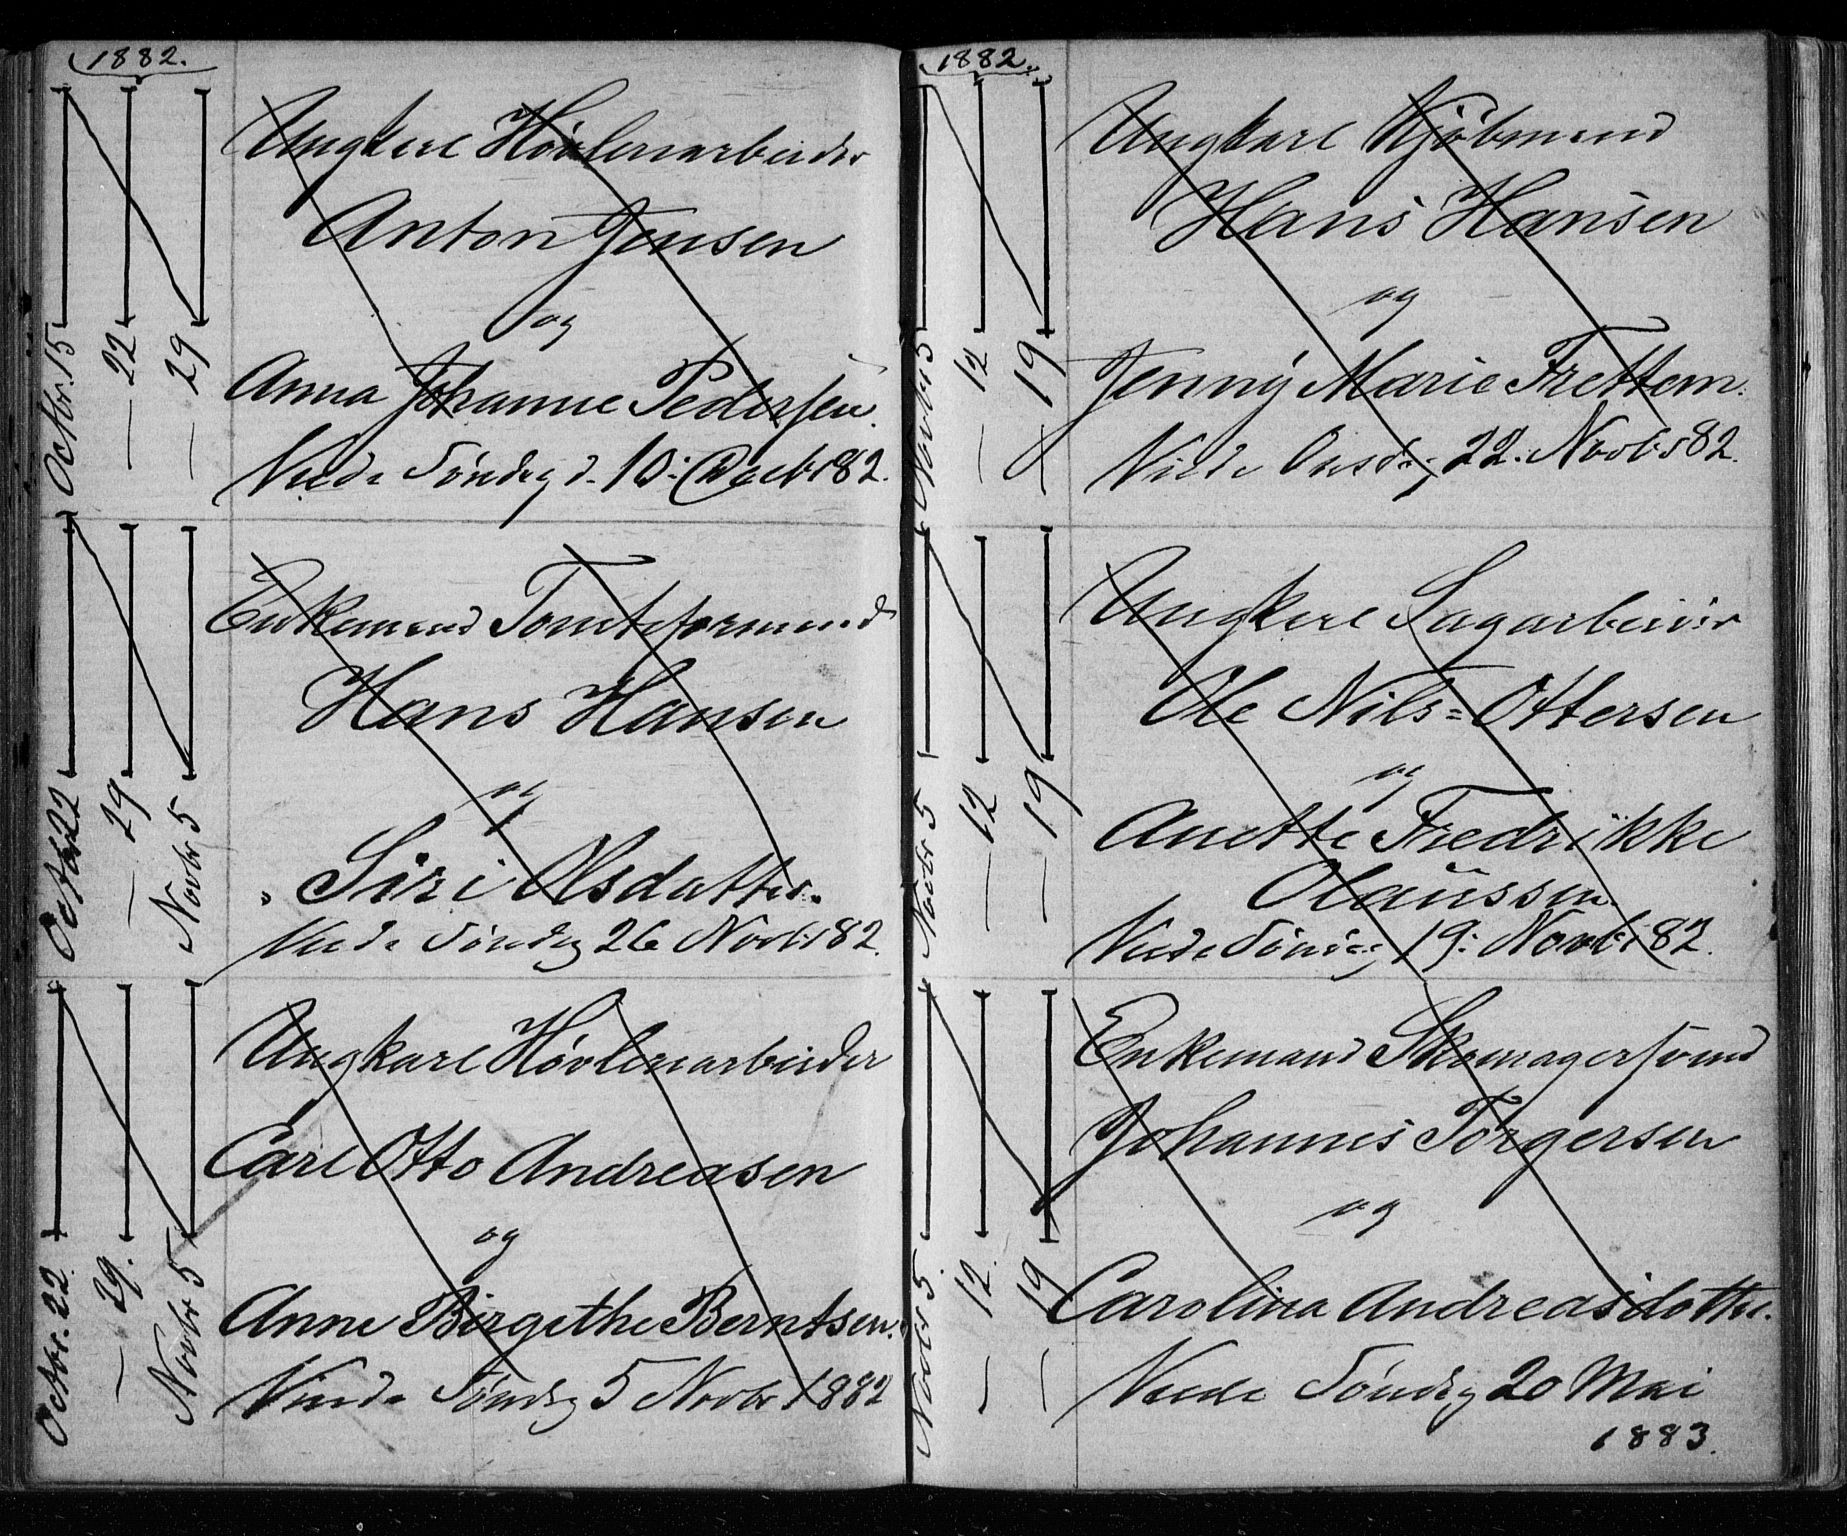 1882.
Octbr. 15
— 22
— 29
Ungkarl Høvlerarbeider
Anton Jensen
og
Anna Johanne Pedersen.
Viede Søndag d. 10: Decbr 82.
Octbr 22
— 29
Novbr 5
Enkemand Tomteformand
Hans Hansen
og
Siri Olsdatter.
Viede Søndag 26 Novbr 82.
Octbr. 22.
— 29.
Novbr 5
Ungkarl Høvlerarbeider
Carl Otto Andreasen
og
Anne Birgithe Berntsen.
Viede Søndag 5 Novbr 1882
1882.
Novbr 5
— 12
— 19
Ungkarl Kjøbmand
Hans Hansen
og
Jenny Marie Frettem.
Viede Onsdag 22. Novbr 82.
Novbr 5
— 12
— 19
Ungkarl Sagarbeider
Ole Nils=Ottersen
og
Anette Fredrikke
Olaüssen.
Viede Søndag 19: Novbr 82.
Novbr 5.
12. —
19 —
Enkemand Skomagersvend
Johannes Torgersen
og
Carolina Andreasdotter.
Viede Søndag 20 Mai
1883.